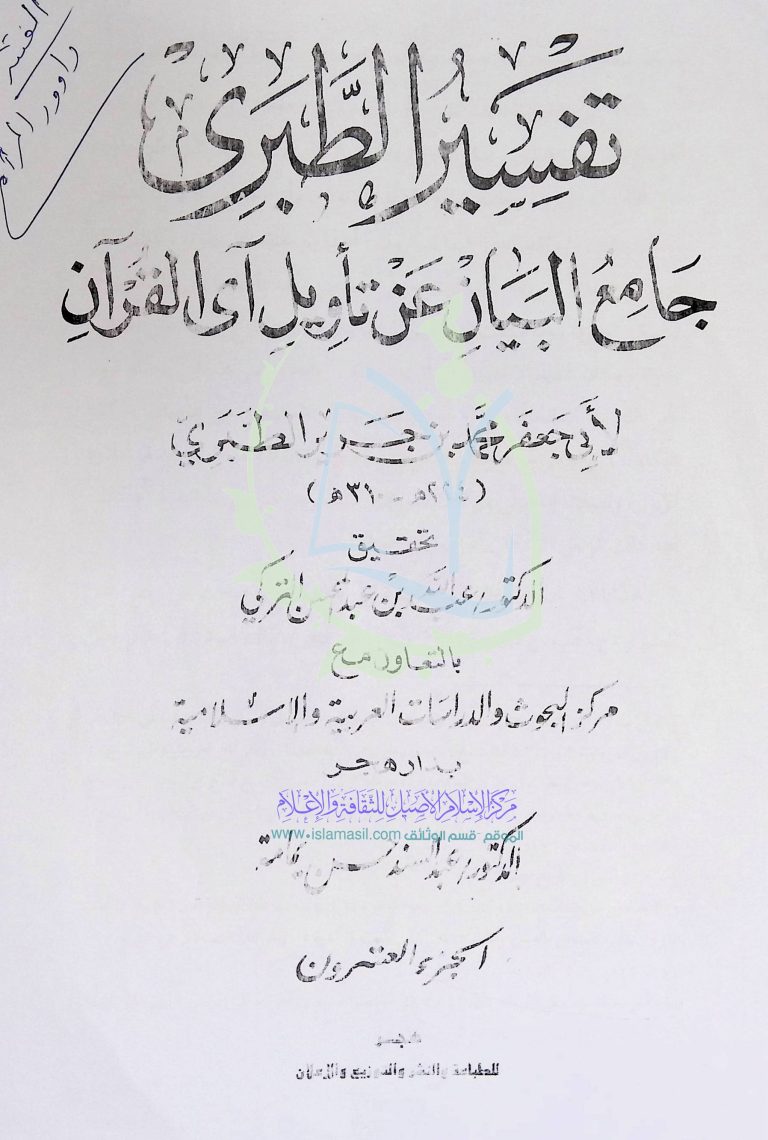 تَفسِيرُ الطَّبَرِي
جَامِعُ البَيَانِ عَنْ تَأوِيلِ آىِ القُرْآنِ
لأَبِي جَعفَر مُحَمَّد بن جَرير الطَّبَرِيّ
(٢٢٤هـ - ٣١٠هـ)
تحقيق
الدكتور عبد الله بن عبد المحسن التركي
بالتعاون مع
مركز البحوث والدراسات العربية والإسلامية
بدار هجر
مركز الإسلام الأصيل للثقافة والإعلام
الموقع - قسم الوثائق www.islamasil.com
الدكتور عبد السند حسن يمامة
الجزء العشرون
هجر
للطباعة والنشر والتوزيع والإعلان